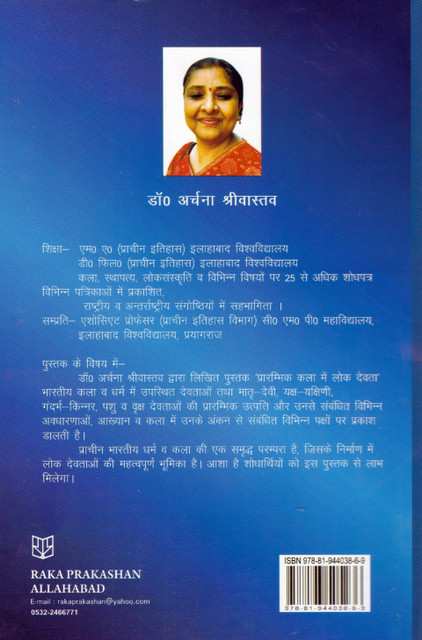 डॉ0 अर्चना श्रीवास्तव
शिक्षा– एम0 ए0 (प्राचीन इतिहास) इलाहाबाद विश्वविद्यालय
डी0 फिल0 (प्राचीन इतिहास) इलाहाबाद विश्वविद्यालय
कला, स्थापत्य, लोकसंस्कृति व विभिन्न विषयों पर 25 से अधिक शोधपत्र
विभिन्न पत्रिकाओं में प्रकाशित,
राष्ट्रीय व अन्तर्राष्ट्रीय संगोष्ठियों में सहभागिता ।
सम्प्रति– एशोसिएट प्रोफेसर (प्राचीन इतिहास विभाग) सी0 एम0 पी0 महाविद्यालय,
इलाहाबाद विश्वविद्यालय, प्रयागराज
पुस्तक के विषय में–
डॉ0 अर्चना श्रीवास्तव द्वारा लिखित पुस्तक 'प्रारम्भिक कला में लोक देवता'
भारतीय कला व धर्म में उपस्थित देवताओं तथा मातृ–देवी, यक्ष–यक्षिणी,
गंदर्भ–किन्नर, पशु व वृक्ष देवताओं की प्रारम्भिक उत्पति और उनसे संबंधित विभिन्न
अवधारणाओं, आख्यान व कला में उनके अंकन से संबंधित विभिन्न पक्षों पर प्रकाश
डालती है।
प्राचीन भारतीय धर्म व कला की एक समृद्ध परम्परा है, जिसके निर्माण में
लोक देवताओं की महत्वपूर्ण भूमिका है। आशा है शोधार्थियों को इस पुस्तक से लाभ
मिलेगा।
RAKA PRAKASHAN
ALLAHABAD
E-mail : rakaprakashan@yahoo.com
0532-2466771
ISBN 978-81-944038-6-9
978-81-944038-6-9